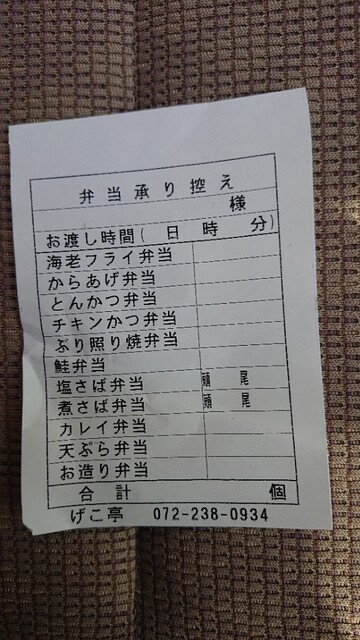 弁当承り控え
様
お渡し時間( 日 時 分)
海老フライ弁当
からあげ弁当
とんかつ弁当
チキンかつ弁当
ぶり照り焼弁当
鮭弁当
塩さば弁当 頭 尾
煮さば弁当 頭 尾
カレイ弁当
天ぷら弁当
お造り弁当
合計 個
げこ亭 072-238-0934